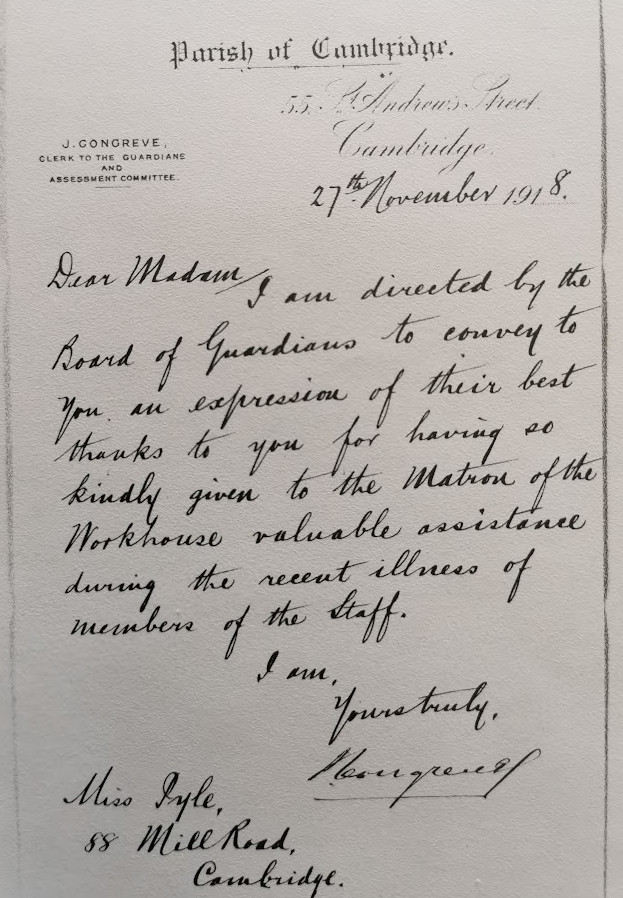 Parish of Cambridge.
55. St Andrew's Street.
Cambridge.
J. CONGREVE,
CLERK TO THE GUARDIANS
AND
ASSESSMENT COMMITTEE.
27th November 1918.
Dear Madam
I am directed by the
Board of Guardians to convey to
you an expression of their best
thanks to you for having so
kindly given to the Matron of the
Workhouse valuable assistance
during the recent illness of
members of the Staff.
I am,
Yours truly,
J Congreve
Miss Pyle,
88 Mill Road,
Cambridge.